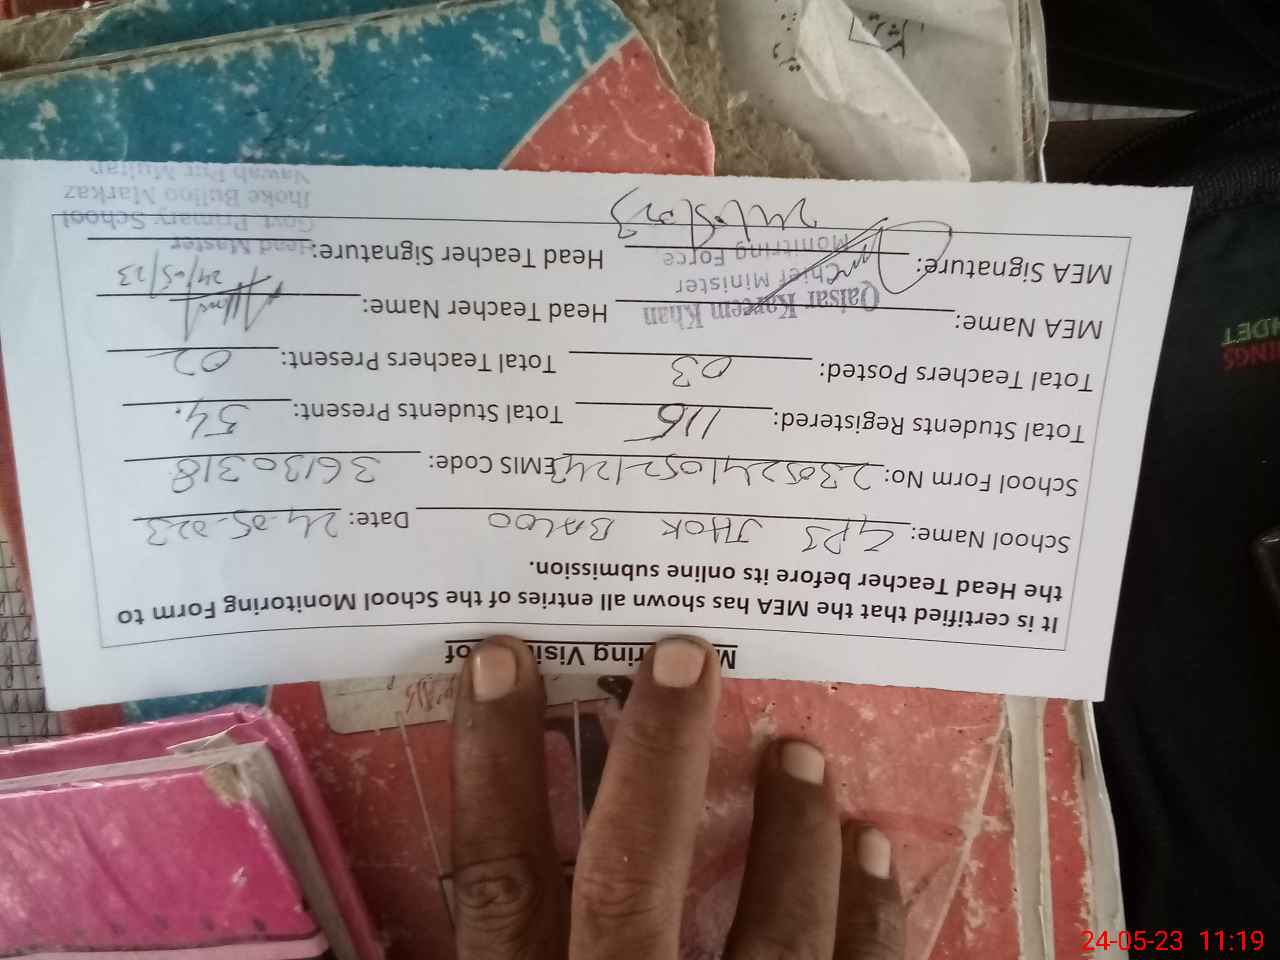 It is certified that the MEA has shown all entries of the School Monitoring Form to
the Head Teacher before its online submission.
School Name: GPS JHOK BALOO Date: 24-05-023
School Form No: EMIS Code: 36130318
Total Students Registered: 115 Total Students Present: 54.
Total Teachers Posted: 03 Total Teachers Present: 02
MEA Name: Head Teacher Name:
Qaisar Kareem Khan
Chief Minister
Monitring Force
24/05/23
MEA Signature: Head Teacher Signature:
Head Master
Govt Primary School
Jhoke Bulloo Markaz
Nawab Pur Multan
24-05-23 11:19